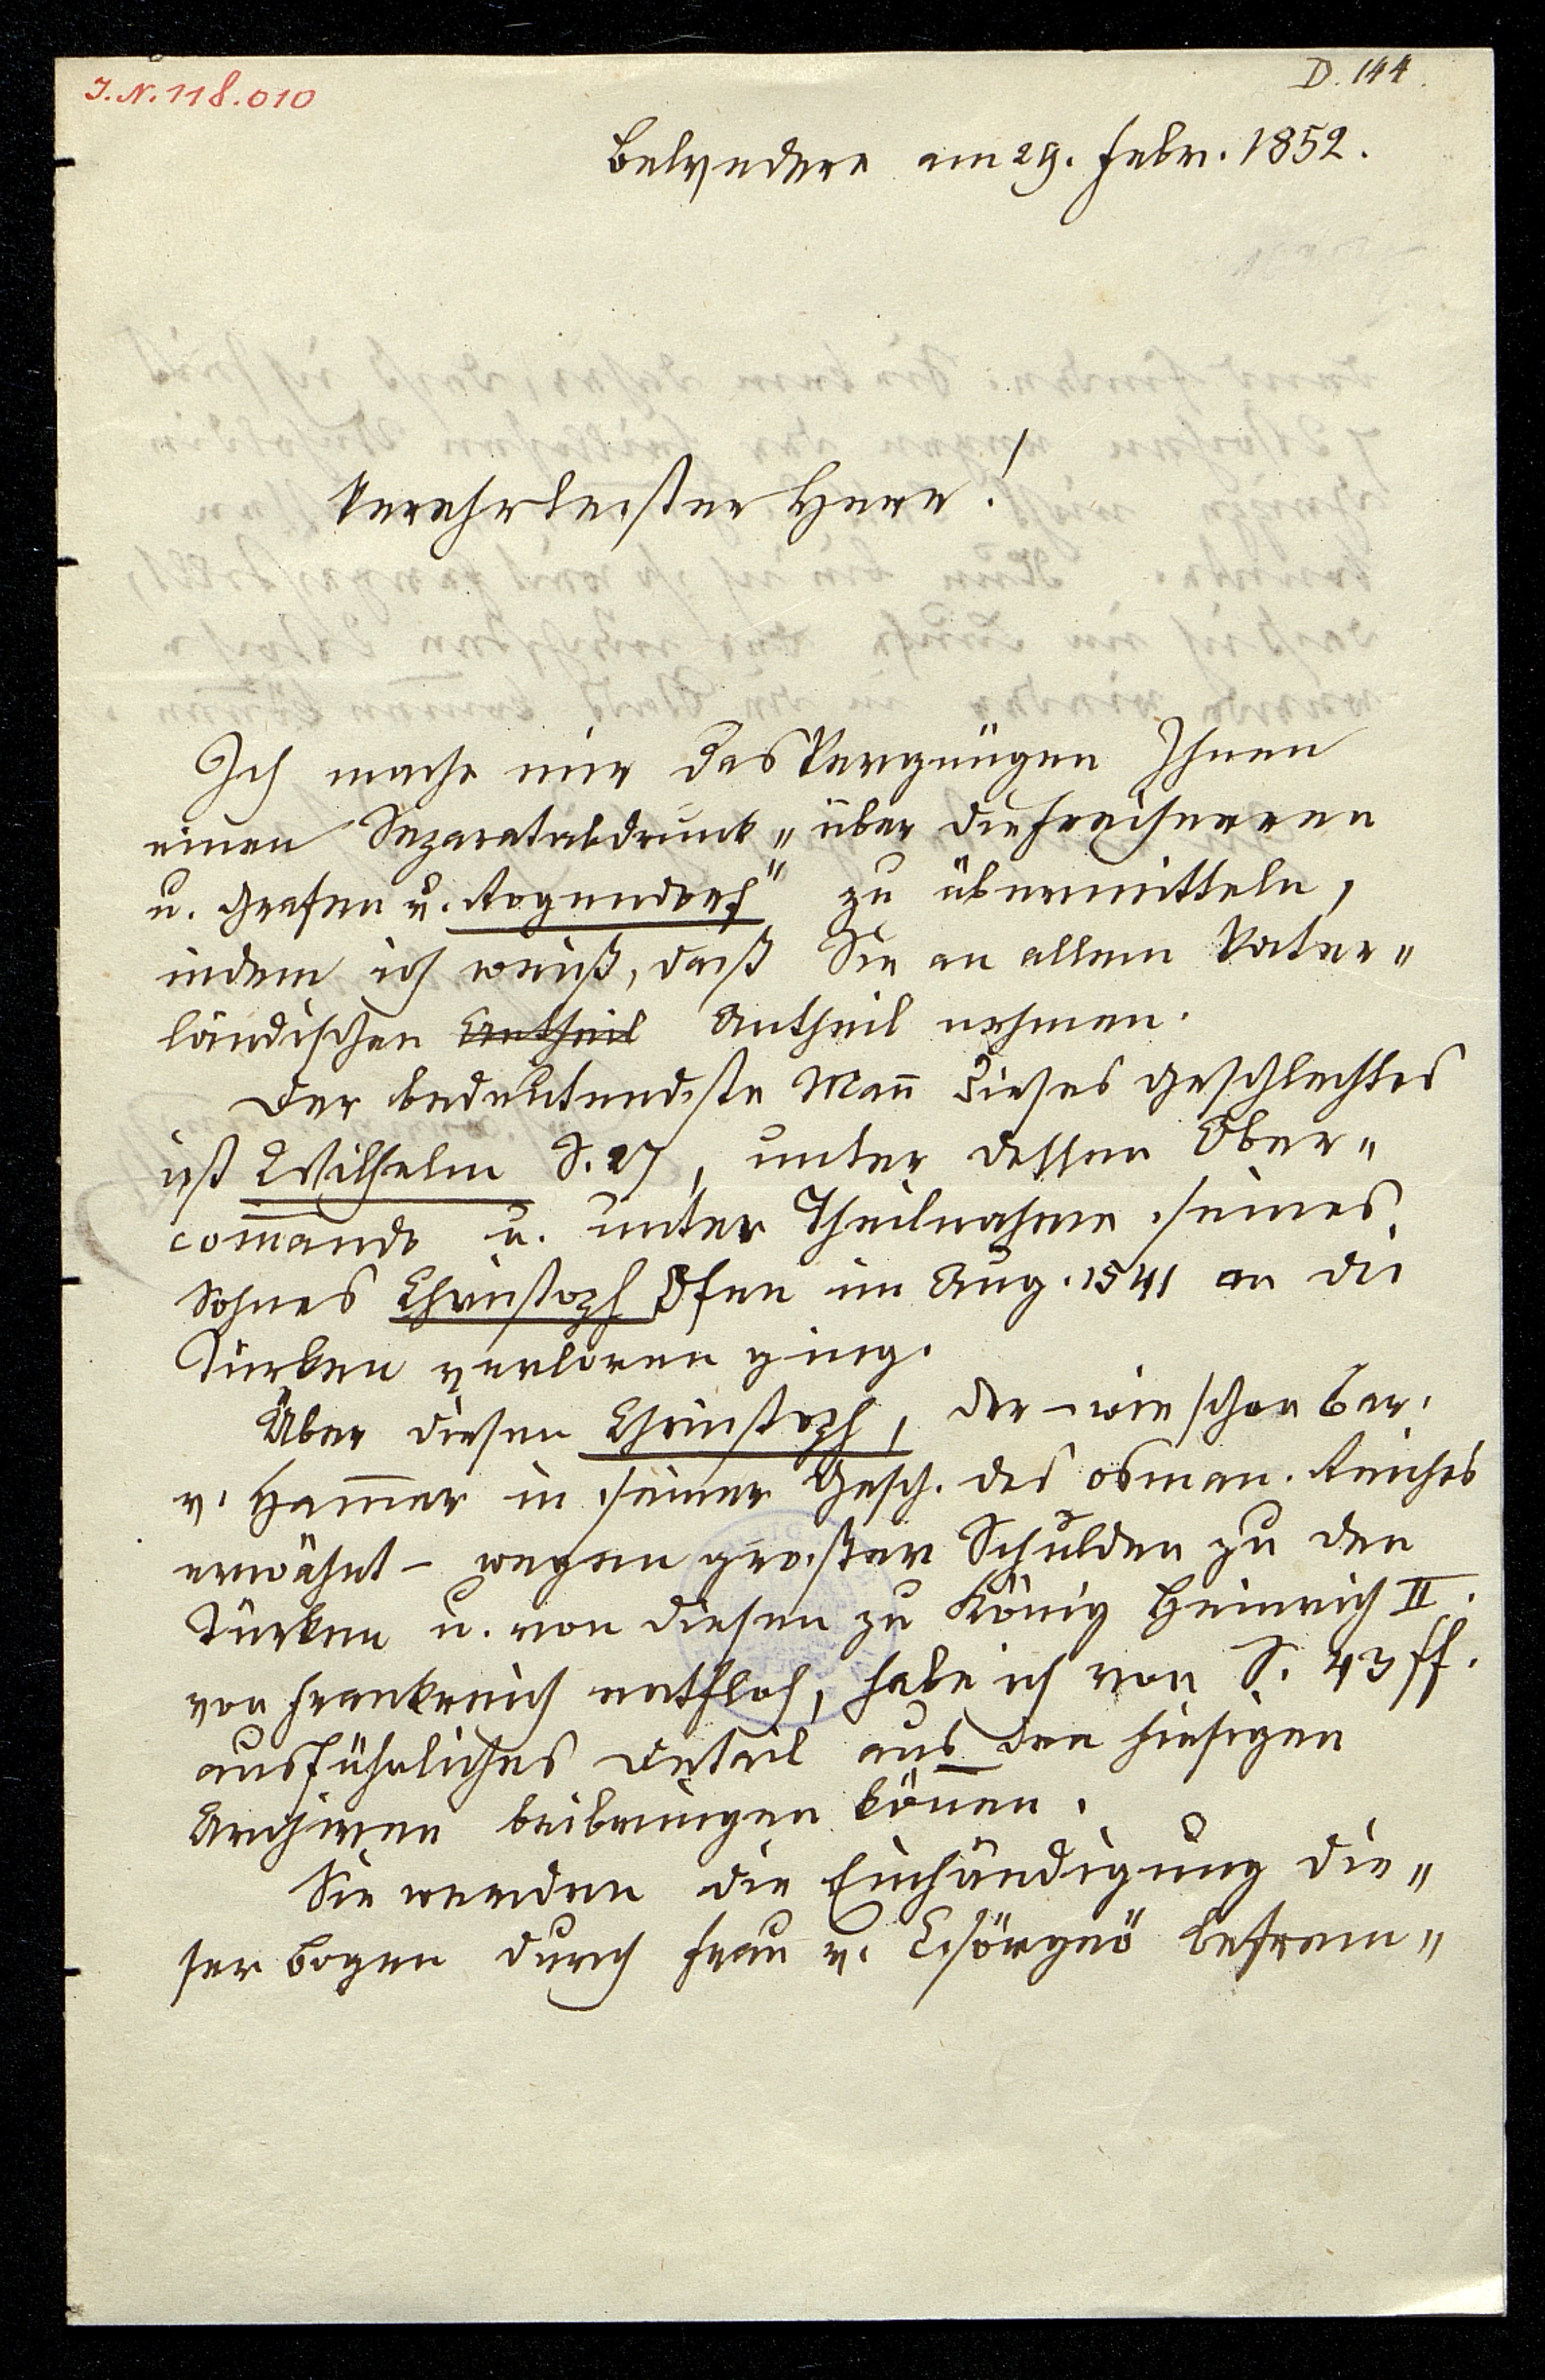 J.N. 118.010
D. 144.
Belvedere am 29. Febr. 1852.
Verehrtester Herr!
Ich mache mir das Vergnügen Ihnen
einen Separatabdruck „über die Freiherren
u. Grafen v. Rogendorf" zu übermitteln,
indem ich weiß, daß Sie an allem Vater„
ländischen Antheil Antheil nehmen.
Der bedeutendste Mañ dieses Geschlechtes
ist Wilhelm S. 27, unter dessen Ober„
com̄ando u. unter Theilnahme seines
Sohnes Christoph Ofen im Aug. 1541 an die
Türken verloren ging.
Über diesen Christoph, der – wie schon Bar.
v. Ham̄er in seiner Gesch. des osman. Reiches
erwähnt – wegen großer Schulden zu den
Türken u. von diesen zu König Heinrich II.
von Frankreich entfloh, habe ich von S. 43 ff.
ausführliches Detail aus den hiesigen
Archiven beibringen köñen.
Sie werden die Einhändigung die„
ser Bogen durch Frau v. Csörgeö befrem„